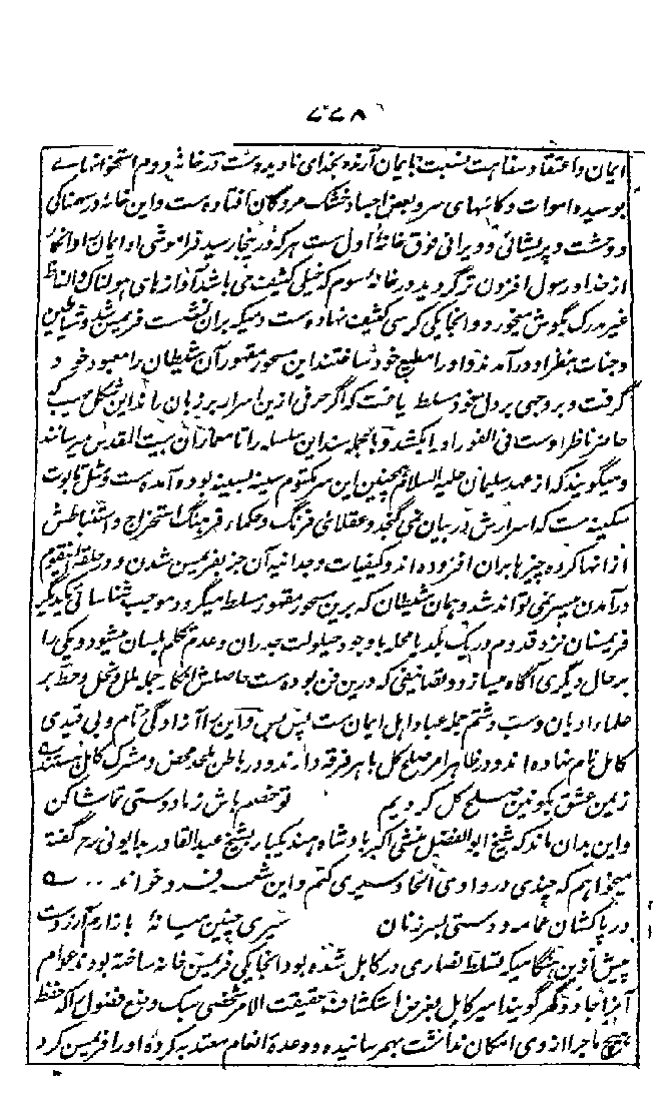 ۴۴۸
ایمان و اعتقاد سفاهت نسبت با ایمان آرند بخدای نادیده است در خانهٔ دوم استخوانهای
بوسیده اموات و کاسهای سر و بعض اجساد خشک مردگان افتاده است و این خانه در سهمناکی
و وحشت و پریشانی و ویرانی فوق خانهٔ اول است هر که در ینجا رسید فراموشی او ایمان او انکار
از خدا و رسول افزون تر گردید در خانهٔ سوم که خیلی کثیف می باشد آواز های هولناک و الفاظ
غیر مدرک بگوش میخورد و انجا یکی کرسی کثیف نهاده است و میکه بران نشست فریمن شد و شیاطین
و جنات بنظر او درآمدند و او را مطیع خود ساختند این مسحور مقهور آن شیطان را معبود خود
گرفت و بروجی بر دل خود مسلط یافت که اگر حرفی ازین اسرار بر زبان راند این شکل مهیب که
حاضر ناظر اوست فی الفور او را بکشد و بالجمله سند این سلسله را تا معماران بیت المقدس میرسانند
و میگویند که از عهد سلیمان علیه السلام همچنین این سر مکتوم سینه بسینه بوده آمده است و مثل تابوت
سکینه است که اسرارش در بیان نمی گنجد و عقلای فرنگ و حکماء فرهنگ استخراج و استنباطش
از انها کرده چیزها بران افزوده اند و کیفیات وجدانیه آن جز بفریمن شدن و در حلقهٔ آنقوم
درآمدن میسر نمی تواند شد و همان شیطان که برین مسحور مقهور مسلط میگردد موجب شناسائی یکدیگر
فریمسنان نزد قدوم در یک بلد یا محله با وجود حیلولت جدران و عدم تکلم بلسان میشود و یکی را
بر حال دیگری آگاه میسازد و تصانیفی که درین فن بوده است حاصلش انکار جمله ملل و نحل و حط بر
علماء ادیان و سب و شتم جمله عباد اهل ایمان است پس بس و این را آزادگی نام و بی قیدی
کامل نام نهاده اند و در ظاهر امر صلح کل با هر فرقه دارند و در باطن ملحد محض و مشرک کامل هستند
زمین عشق بکونین صلح کل کردیم تو خصم باش ز ما دوستی تماشا کن
و این بدان ماند که شیخ ابو الفضل منشی اکبر بادشاه هند یکبار بشیخ عبد القادر بدایونی رح گفته
میخواهم که چندی در وادی الحاد سیری کنم و این شعر فرو خواند
در پا کشان عمامه و دستی بسر زنان سیری چنین میانهٔ بازارم آرزوست
پیش ازین هنگامیکه تسلط نصاری در کابل شده بود انجا یکی فریمسن خانه ساخته بودند عوام
آنرا جادو گهر گویند امیر کابل بغرض استکشاف حقیقت الامر شخصی سبک وضع فضول را که حفظ
هیچ ماجرا از وی امکان نداشت بهم رسانیده وعدهٔ انعام معتد به کرده او را فریمسن کرد